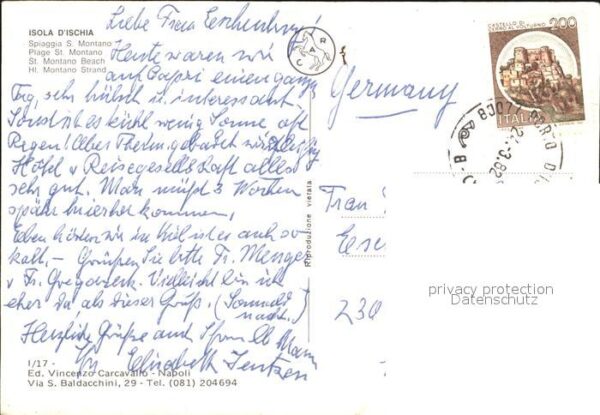 Liebe Frau Eschenburg!
ISOLA D'ISCHIA
Spiaggia S. Montano
Plage St. Montano
St. Montano Beach
Hl. Montano Strand
Heute waren wir
auf Capri einen ganz
Tag, sehr hübsch u. interessant
Sonst ist es kühl wenig Sonne oft
Regen! Aber Therm gebadet wird
Hotel u Reisegesellschaft alles
sehr gut. Man müßt 3 Wochen
später hierher kommen,
Eben hörten wir in Kiel ist es auch so
kalt, – Grüßen Sie bitte Fr. Menger
u Fr. Vielleicht bin ich
eher da als dieser Gruß. (Sonnab
nacht.)
Herzliche Grüße auch Ihrem lb Mann
Ihre Elisabeth Jentzen
I/17 -
Ed. Vincenzo Carcavallo - Napoli
Via S. Baldacchini, 29 - Tel. (081) 204694
Riproduzione vietata
CASTELLO DI
CERRO AL VOLTURNO
200
ITALIA
80077 PORTO D'IS
24.3.82
Germany
Frau
Esc
230
privacy protection
Datenschutz